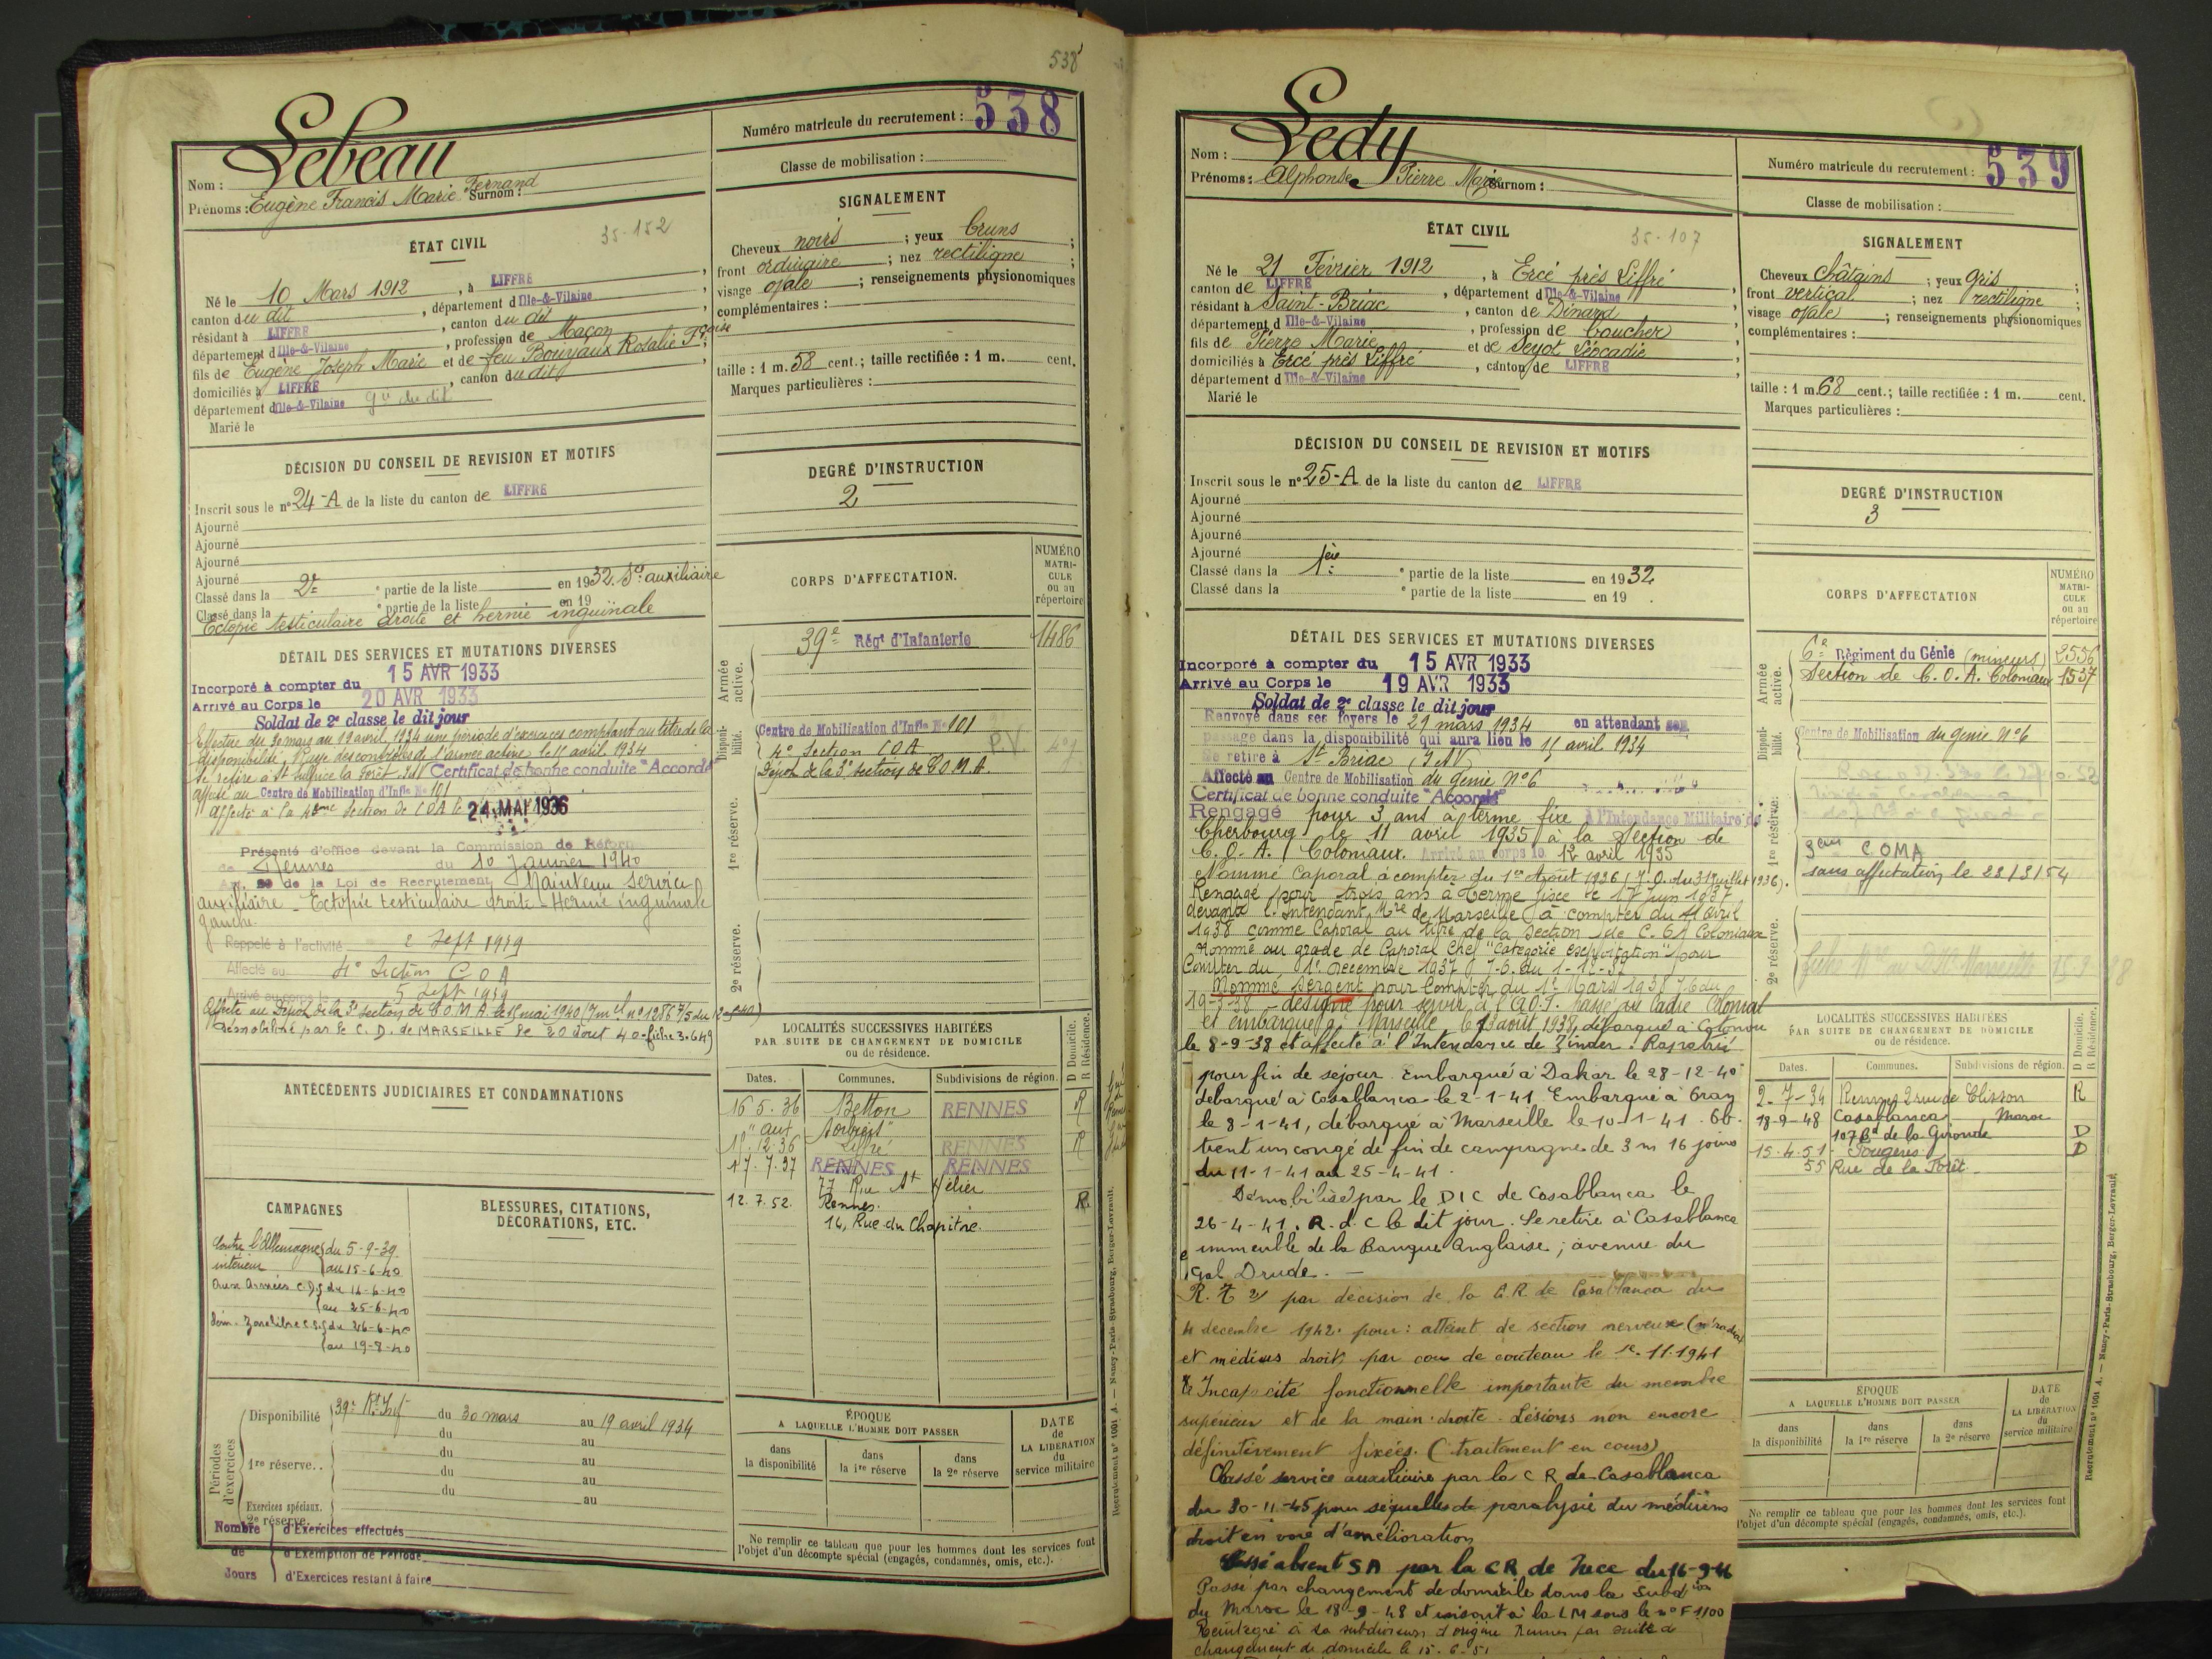 538
Lebeau
Nom :
Fernand
Prénoms : Eugène Francis Marie Surnom :
ÉTAT CIVIL
35-152
Né le 10 Mars 1912, à LIFFRÉ
canton du dit, département d'Ille-&-Vilaine
résidant à LIFFRÉ, canton du dit
département d'Ille-&-Vilaine, profession de Maçon
fils de Eugène Joseph Marie et de feu Bouvjaux Rosalie Fçoise
domiciliés à LIFFRÉ, canton du dit
département d'Ille-&-Vilaine
Marié le
DÉCISION DU CONSEIL DE REVISION ET MOTIFS
Inscrit sous le n° 24-A de la liste du canton de LIFFRÉ
Ajourné
Ajourné
Ajourné
Ajourné
Classé dans la 2e partie de la liste en 1932. Sce auxiliaire
Classé dans la e partie de la liste en 19
Ectopie testiculaire droite et hernie inguinale
DÉTAIL DES SERVICES ET MUTATIONS DIVERSES
Incorporé à compter du 15 AVR 1933
Arrivé au Corps le 20 AVR 1933
Soldat de 2e classe le dit jour
Effectue du 30 mars au 19 avril 1934 une période d'exercices comptant au titre de la
disponibilité. Rayé des contrôles de l'armée active le 15 avril 1934
Se retire à St Sulpice la Forêt. I&V Certificat de bonne conduite "Accordé"
Affecté au Centre de Mobilisation d'Infie N° 101
Affecté à la 4ème Section de COA le 24 MAI 1936
Présenté d'office devant la Commission de Réforme
de Rennes du 10 Janvier 1940
de la Loi de Recrutement Maintenu service
auxiliaire - Ectopie testiculaire droite - Hernie inguinale
gauche.
Rappelé à l'activité 2 Sept 1939
Affecté au 4e Section COA
Arrivé au corps le 5 Sept 1939
Affecté au Dépôt de la 3e Section de C.O.M.A. le 15 mai 1940
Démobilisé par le C.D. de MARSEILLE le 20 Aout 40 - fiche 3.649
ANTÉCÉDENTS JUDICIAIRES ET CONDAMNATIONS
CAMPAGNES
Contre l'Allemagne du 5-9-39
intérieur au 15-6-40
Aux Armées C.D. du 16-6-40
au 25-6-40
Zone libre C.S. du 26-6-40
au 19-8-40
BLESSURES, CITATIONS,
DÉCORATIONS, ETC.
Périodes d'exercices
Disponibilité 39e Rt Inf du 30 mars au 19 avril 1934
du au
1re réserve.. du au
du au
du au
Exercices spéciaux.
2e réserve.
Nombre de Jours
d'Exercices effectués
d'Exemption de Période
d'Exercices restant à faire
Numéro matricule du recrutement : 538
Classe de mobilisation :
SIGNALEMENT
Cheveux noirs ; yeux bruns ;
front ordinaire ; nez rectiligne ;
visage ovale ; renseignements physionomiques
complémentaires :
taille : 1 m. 58 cent. ; taille rectifiée : 1 m. cent.
Marques particulières :
DEGRÉ D'INSTRUCTION
2
CORPS D'AFFECTATION.
NUMÉRO MATRICULE ou au répertoire
Armée active.
39e Régt d'Infanterie 1486
Disponibilité.
Centre de Mobilisation d'Infie N° 101
4e Section COA P.V.
Dépôt de la 3e Section de C.O.M.A.
1re réserve.
2e réserve.
LOCALITÉS SUCCESSIVES HABITÉES
PAR SUITE DE CHANGEMENT DE DOMICILE
ou de résidence.
D Domicile. R Résidence.
Dates. Communes. Subdivisions de région.
16 5. 36 Betton RENNES R
"aux
17.12.36 Liffré RENNES R
17. 7. 37 RENNES RENNES
77 Rue St Hélier
12. 7. 52 Rennes. R
16, Rue du Chapitre.
ÉPOQUE
A LAQUELLE L'HOMME DOIT PASSER
DATE de LA LIBÉRATION du service militaire
dans la disponibilité
dans la 1re réserve
dans la 2e réserve
No remplir ce tableau que pour les hommes dont les services font
l'objet d'un décompte spécial (engagés, condamnés, omis, etc.).
Recrutement n° 1001 A. — Nancy-Paris-Strasbourg, Berger-Levrault.
Ledy
Nom :
Prénoms : Alphonse Pierre Marie Surnom :
ÉTAT CIVIL
35-107
Né le 21 Février 1912, à Ercé près Liffré
canton de LIFFRÉ, département d'Ille-&-Vilaine
résidant à Saint-Briac, canton de Dinard
département d'Ille-&-Vilaine, profession de boucher
fils de Pierre Marie et de Seyot Léocadie
domiciliés à Ercé près Liffré, canton de LIFFRÉ
département d'Ille-&-Vilaine
Marié le
DÉCISION DU CONSEIL DE REVISION ET MOTIFS
Inscrit sous le n° 25-A de la liste du canton de LIFFRÉ
Ajourné
Ajourné
Ajourné
Ajourné
Classé dans la 1ère partie de la liste en 1932
Classé dans la e partie de la liste en 19 .
DÉTAIL DES SERVICES ET MUTATIONS DIVERSES
Incorporé à compter du 15 AVR 1933
Arrivé au Corps le 19 AVR 1933
Soldat de 2e classe le dit jour
Renvoyé dans ses foyers le 29 mars 1934 en attendant son
passage dans la disponibilité qui aura lieu le 15 avril 1934
Se retire à St Briac (I&V)
Affecté au Centre de Mobilisation du génie N° 6
Certificat de bonne conduite "Accordé"
Rengagé pour 3 ans à terme fixe à l'Intendance Militaire de
Cherbourg le 11 avril 1935 à la Section de
C.O.A. Coloniaux. Arrivé au corps le 12 avril 1935
Nommé Caporal à compter du 1er Août 1936 (J.O. du 31 Juillet 1936).
Rengagé pour trois ans à terme fixe le 17 Juin 1937
devant l'Intendant Mre de Marseille à compter du 11 avril
1938 comme Caporal au titre de la Section de C.O.A Coloniaux
Nommé au grade de Caporal Chef "Catégorie exploitation" pour
Compter du 1er Décembre 1937 J.O. du 1-12-37
Nommé Sergent pour Compter du 1er Mars 1938 J.O du
19-3-38 - désigné pour servir à l'A.O.F. passé au Cadre Colonial
et embarqué à Marseille le 19 août 1938, débarqué à Cotonou
le 8-9-38 et affecté à l'Intendance de Zinder. Rapatrié
pour fin de séjour. Embarqué à Dakar le 28-12-40
débarqué à Casablanca le 2-1-41. Embarqué à Oran
le 8-1-41, débarqué à Marseille le 10-1-41. Ob-
tient un congé de fin de campagne de 3 m 16 jours
du 11-1-41 au 25-4-41.
Démobilisé par le DIC de Casablanca le
26-4-41. R.d.c le dit jour. Se retire à Casablanca
immeuble de la Banque Anglaise ; avenue du
Gal Drude. —
R. T 2 par décision de la C.R de Casablanca du
4 décembre 1942. pour : atteint de section nerveuse
et médius droit par cou de couteau le 11.1941
Incapacité fonctionnelle importante du membre
supérieur et de la main droite. Lésions non encore
définitivement fixées. (traitement en cours)
Classé service auxiliaire par la C R de Casablanca
du 30-11-45 pour séquelles de paralysie du médium
droit en voie d'amélioration
Classé absent SA par la CR de Nice du 16-9-46
Passé par changement de domicile dans la Subdion
du Maroc le 18-9-48 et inscrit à la LM sous le n° F 1100
Réintégré à sa subdivision d'origine Rennes par suite de
changement de domicile le 15-6-51
Numéro matricule du recrutement : 539
Classe de mobilisation :
SIGNALEMENT
Cheveux châtains ; yeux gris ;
front vertical ; nez rectiligne ;
visage ovale ; renseignements physionomiques
complémentaires :
taille : 1 m. 68 cent. ; taille rectifiée : 1 m. cent.
Marques particulières :
DEGRÉ D'INSTRUCTION
3
CORPS D'AFFECTATION
NUMÉRO MATRICULE ou au répertoire
Armée active.
6e Régiment du Génie (mineurs) 2556
Section de C.O.A. Coloniaux 1537
Disponibilité.
Centre de Mobilisation du génie N° 6
1re réserve.
3eme COMA
sans affectation le 23/3/54
2e réserve.
LOCALITÉS SUCCESSIVES HABITÉES
PAR SUITE DE CHANGEMENT DE DOMICILE
ou de résidence.
D Domicile. R Résidence.
Dates. Communes. Subdivisions de région.
2-7-34 Rennes 2 rue de Clisson R
18-9-48 Casablanca Maroc
107 Bd de la Gironde D
15.4.51 Fougères D
55 Rue de la Forêt
ÉPOQUE
A LAQUELLE L'HOMME DOIT PASSER
DATE de LA LIBÉRATION du service militaire
dans la disponibilité
dans la 1re réserve
dans la 2e réserve
No remplir ce tableau que pour les hommes dont les services font
l'objet d'un décompte spécial (engagés, condamnés, omis, etc.).
Recrutement n° 1001 A. — Nancy-Paris-Strasbourg, Berger-Levrault.